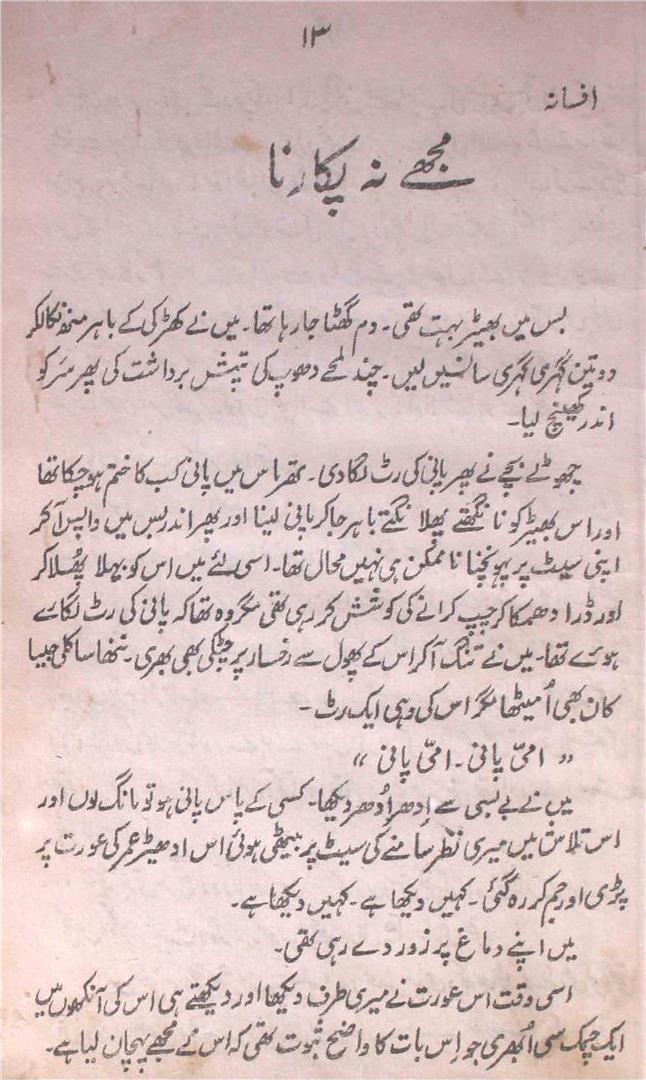 ۱۳
افسانہ
مجھے نہ پکارنا
بس میں بھیڑ بہت تھی۔ دم گھٹا جا رہا تھا۔ میں نے کھڑکی کے باہر منھ نکالکر
دو تین گہری گہری سانسیں لیں۔ چند لمحے دھوپ کی تپش برداشت کی پھر سَر کو
اندر کھینچ لیا۔
چھوٹے بچے نے پھر پانی کی رٹ لگا دی۔ تھرماس میں پانی کب کا ختم ہو چکا تھا
اور اس بھیڑ کو نانگھتے پھلانگتے باہر جا کر پانی لینا اور پھر اندر بس میں واپس آ کر
اپنی سیٹ پر پہونچنا ناممکن ہی نہیں محال تھا۔ اسی لئے میں اس کو بہلا پھُسلا کر
اور ڈرا دھمکا کر چپ کرانے کی کوشش کر رہی تھی مگر وہ تھا کہ پانی کی رٹ لگائے
ہوئے تھا۔ میں نے تنگ آ کر اس کے پھول سے رخسار پر چٹکی بھی بھری۔ ننھا سا کلی جیسا
کان بھی اُمیٹھا مگر اس کی وہی ایک رٹ۔
” امیّ پانی۔ امیّ پانی “
میں نے بے بسی سے اِدھر اُدھر دیکھا۔ کسی کے پاس پانی ہو تو مانگ لوں اور
اس تلاش میں میری نظر سامنے کی سیٹ پر بیٹھی ہوئی اس ادھیڑ عمر کی عورت پر
پڑی اور جم کر رہ گئی۔ کہیں دیکھا ہے۔ کہیں دیکھا ہے۔
میں اپنے دماغ پر زور دے رہی تھی۔
اسی وقت اس عورت نے میری طرف دیکھا اور دیکھتے ہی اس کی آنکھوں میں
ایک چمک سی اُبھری جو اِس بات کا واضح ثبوت تھی کہ اس نے مجھے پہچان لیا ہے۔